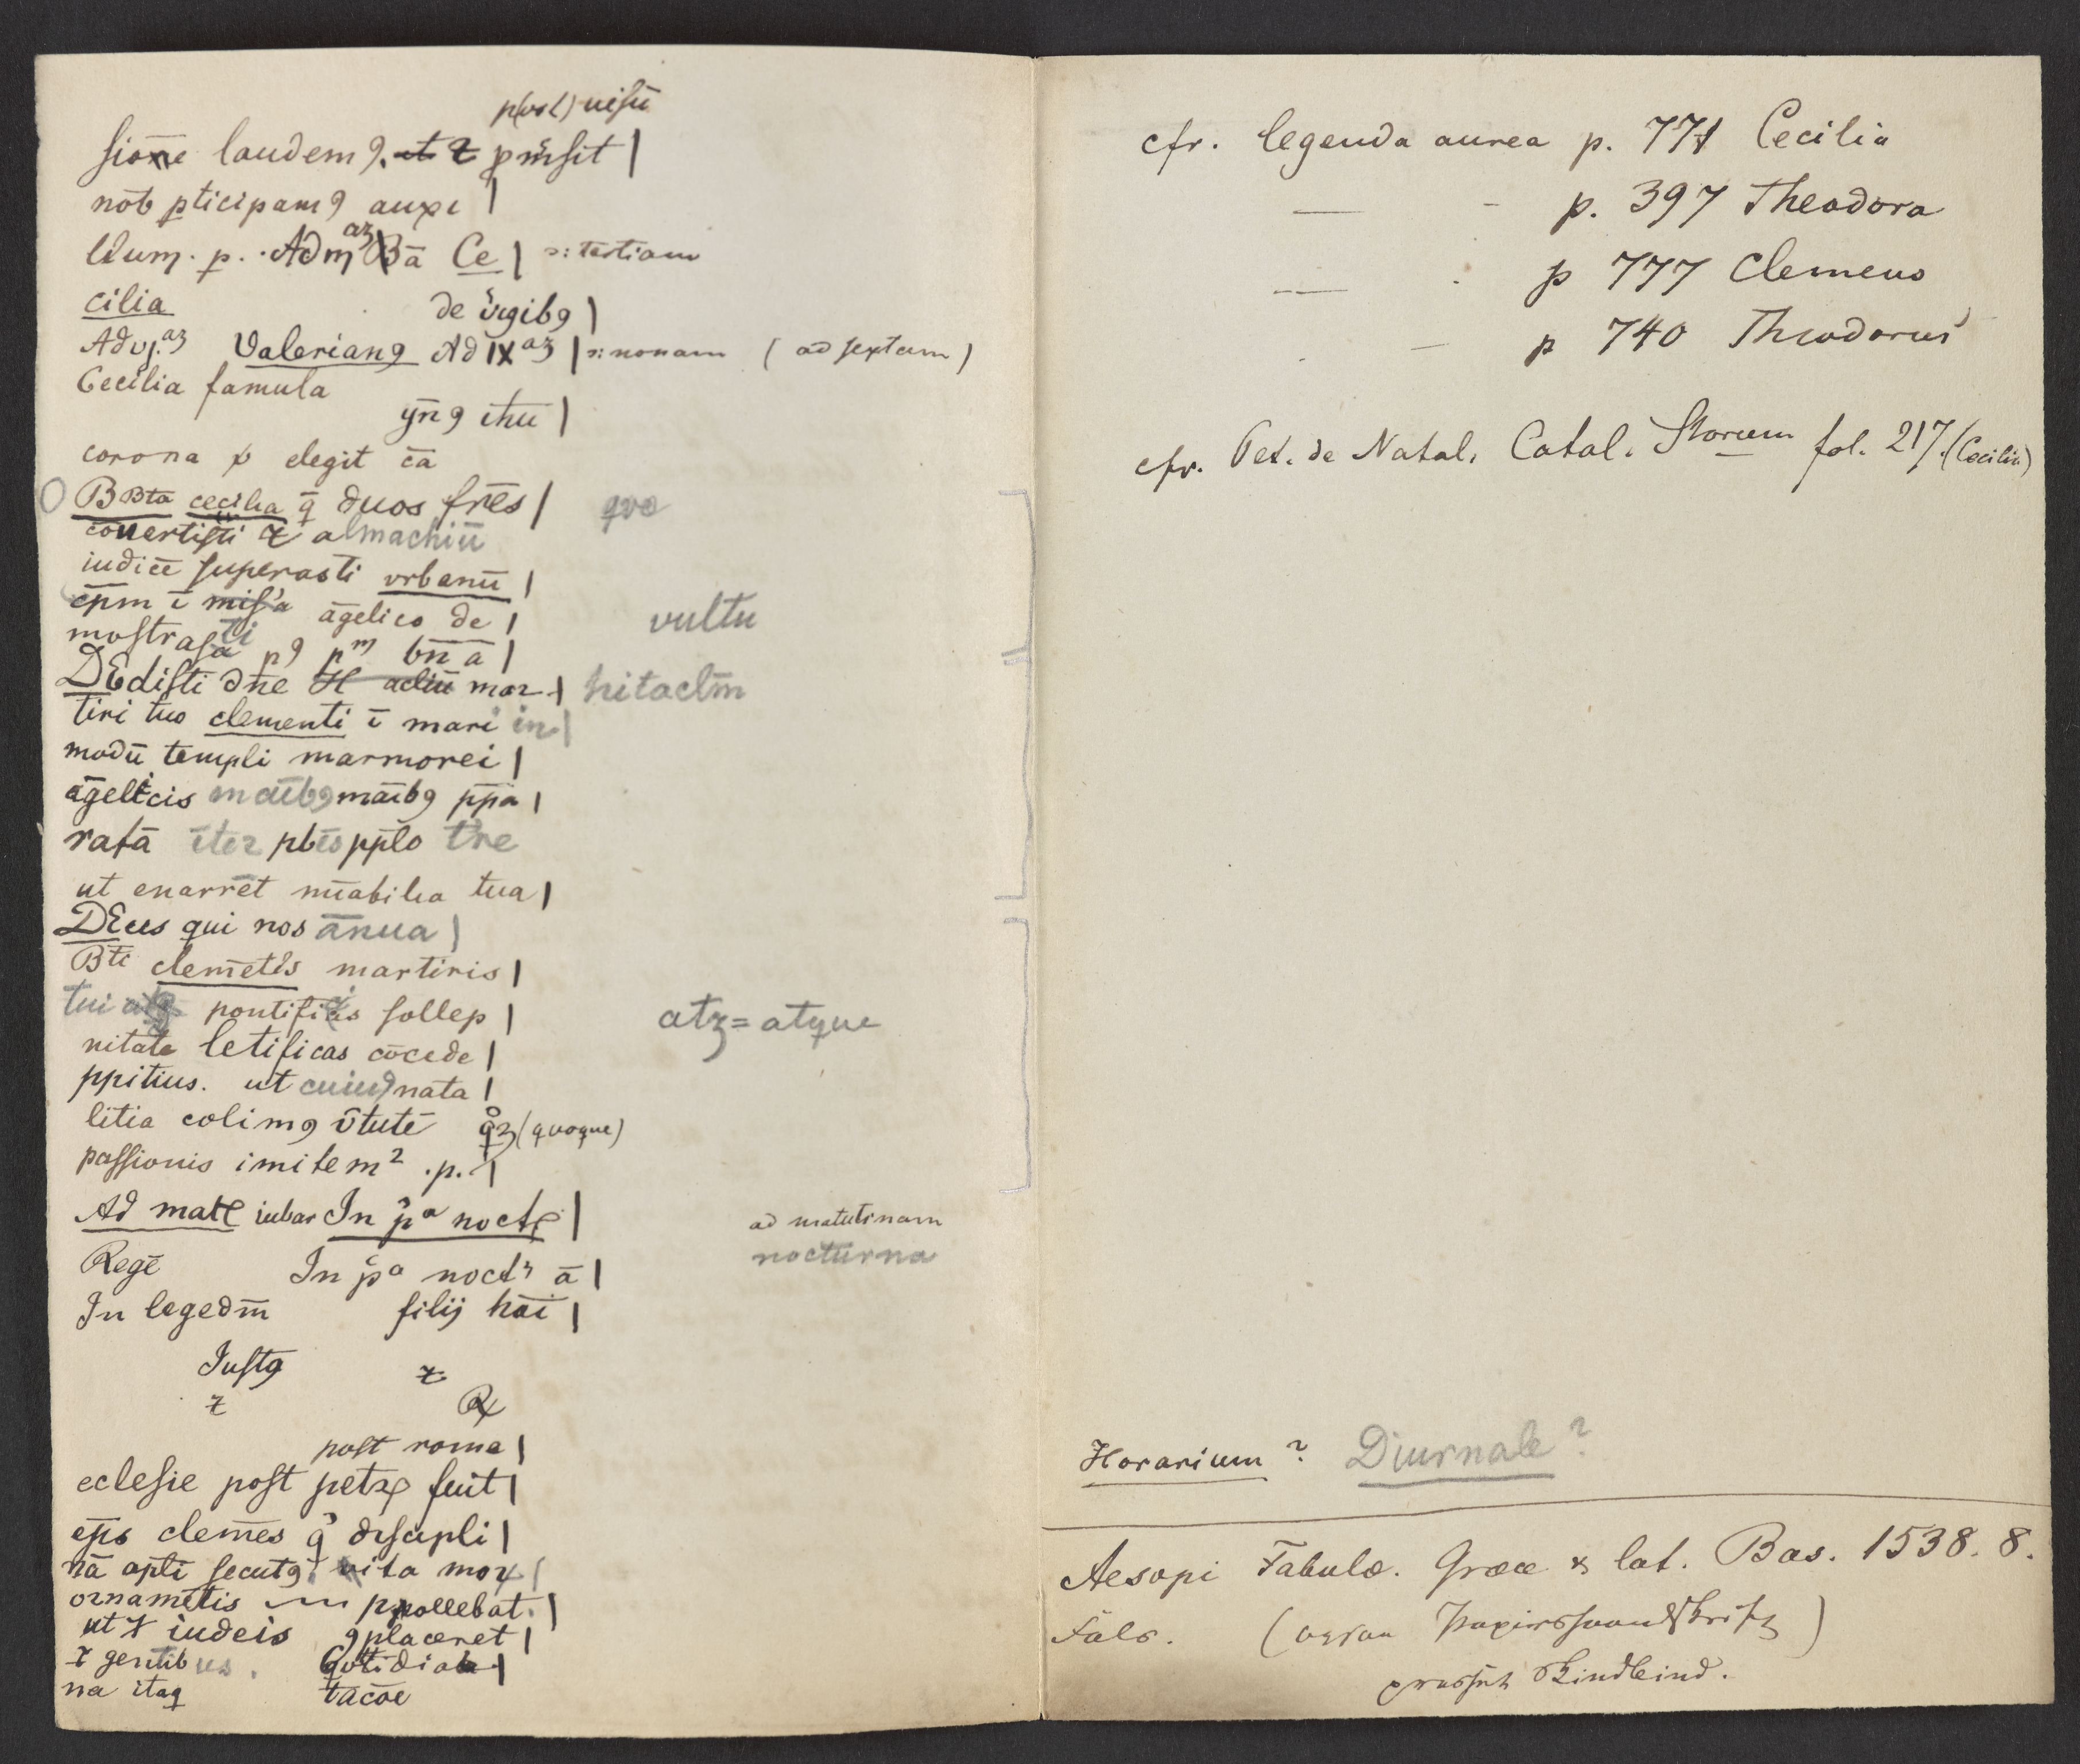 p(ost) uisū
sione laudem9. et ⁊ pm̄sit |
nob̄ pticipam9 auxi |
lium. p. Ad iij az Bā Ce | ɔ: tertiam
cilia de v̄gib9 |
Ad vj. az Valerian9 Ad IX az | ɔ: nonam ( ad sextam )
Cecilia famula
ȳn9 ihū |
corona p elegit cā
B Bta cecilia q̄ duos fr̄es | quo
cōuertisti ⁊ almachiū
iudicē superasti vrbanū |
ēpm ī misa āgelico de | vultu
mostrasti p9 pm bn̄ ā |
DEdisti dn̄e H aclūı mar | hitaclm̄
tiri tuo clementi ī mari in |
modū templi marmorei |
āgelicis māıb9 māıb9 ppa |
ratā īter pb̄is pplo tre
ut enarrēt mı̄abilia tua |
DEus qui nos ānua |
Bti clemētis martiris |
tui atꝫ pontificis sollep | atꝫ = atque
nitate letificas cōcede |
ppitius. ut cuiu9 nata |
litia colim9 v̄tutē q̊ꝫ (quoque)
passionis imitem2 .p. |
Ad mate iubar In pa nocte | ad matutinam
nocturna
Regē In pa noct ā |
In legedm̄ filij hōi |
Iust9 ⁊
⁊ R
post rome |
eclesie post petꝝ fuit |
ep̄s clemēs q̊ discipli |
nā apli secut9. vita mox |
ornamētis ppollebat. |
ut ⁊ iudeis 9placeret |
⁊ gentibus. Qotidia |
na itaq tacōe
cfr. legenda aurea p. 771 Cecilia
— - p. 397 Theodora
— - p 777 Clemens
- — p 740 Theodorus
cfr. Pet. de Natal. Catal. Storum fol. 217. (Cecilia)
Horarium? Diurnale?
Aesopi Fabulæ. Græce & lat. Bas. 1538. 8.